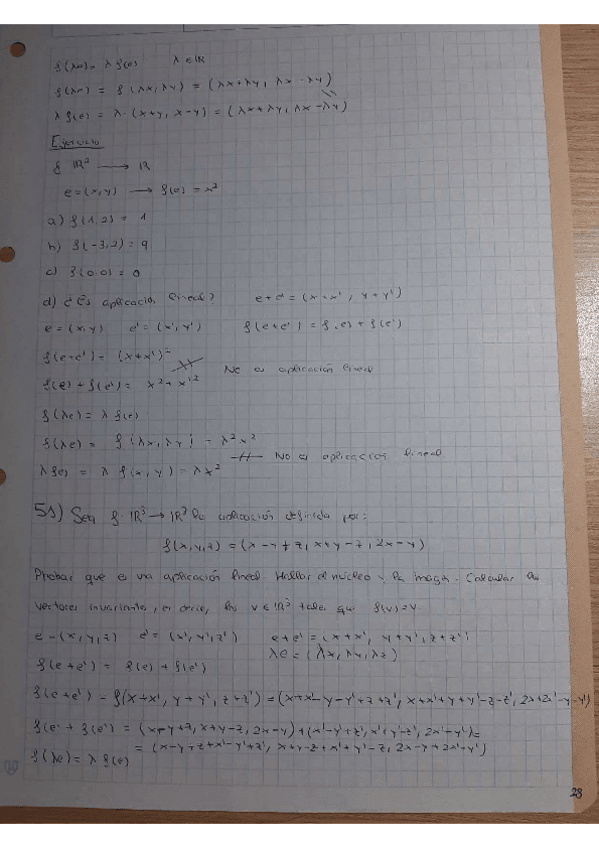 f(λe) = λ f(e) λ ∈ ℝ
f(λe) = f(λx, λy) = (λx+λy, λx-λy)
λ f(e) = λ·(x+y, x-y) = (λx+λy, λx-λy)
Ejercicio
f ℝ² → ℝ
e = (x,y) → f(e) = x²
a) f(1,2) = 1
b) f(-3,2) = 9
c) f(0,0) = 0
d) ¿Es aplicación lineal? e+e' = (x+x', y+y')
e = (x,y) e' = (x',y') f(e+e') = f(e) + f(e')
f(e+e') = (x+x')²
f(e) + f(e') = x² + x'² No es aplicación lineal
f(λe) = λ f(e)
f(λe) = f(λx, λy) = λ²x²
λf(e) = λ f(x,y) = λx² No es aplicación lineal
51) Sea f: ℝ³ → ℝ³ la aplicación definida por:
f(x,y,z) = (x-y+z, x+y-z, 2x-y)
Probar que es una aplicación lineal. Hallar el núcleo y la imagen. Calcular los
vectores invariantes, es decir, los v ∈ ℝ³ tales que f(v)=v.
e = (x,y,z) e' = (x',y',z') e+e' = (x+x', y+y', z+z')
λe = (λx, λy, λz)
f(e+e') = f(e) + f(e')
f(e+e') = f(x+x', y+y', z+z') = (x+x'-y-y'+z+z', x+x'+y+y'-z-z', 2x+2x'-y-y')
f(e) + f(e') = (x-y+z, x+y-z, 2x-y) + (x'-y'+z', x'+y'-z', 2x'-y') =
= (x-y+z+x'-y'+z', x+y-z+x'+y'-z', 2x-y+2x'-y')
f(λe) = λ f(e)
23